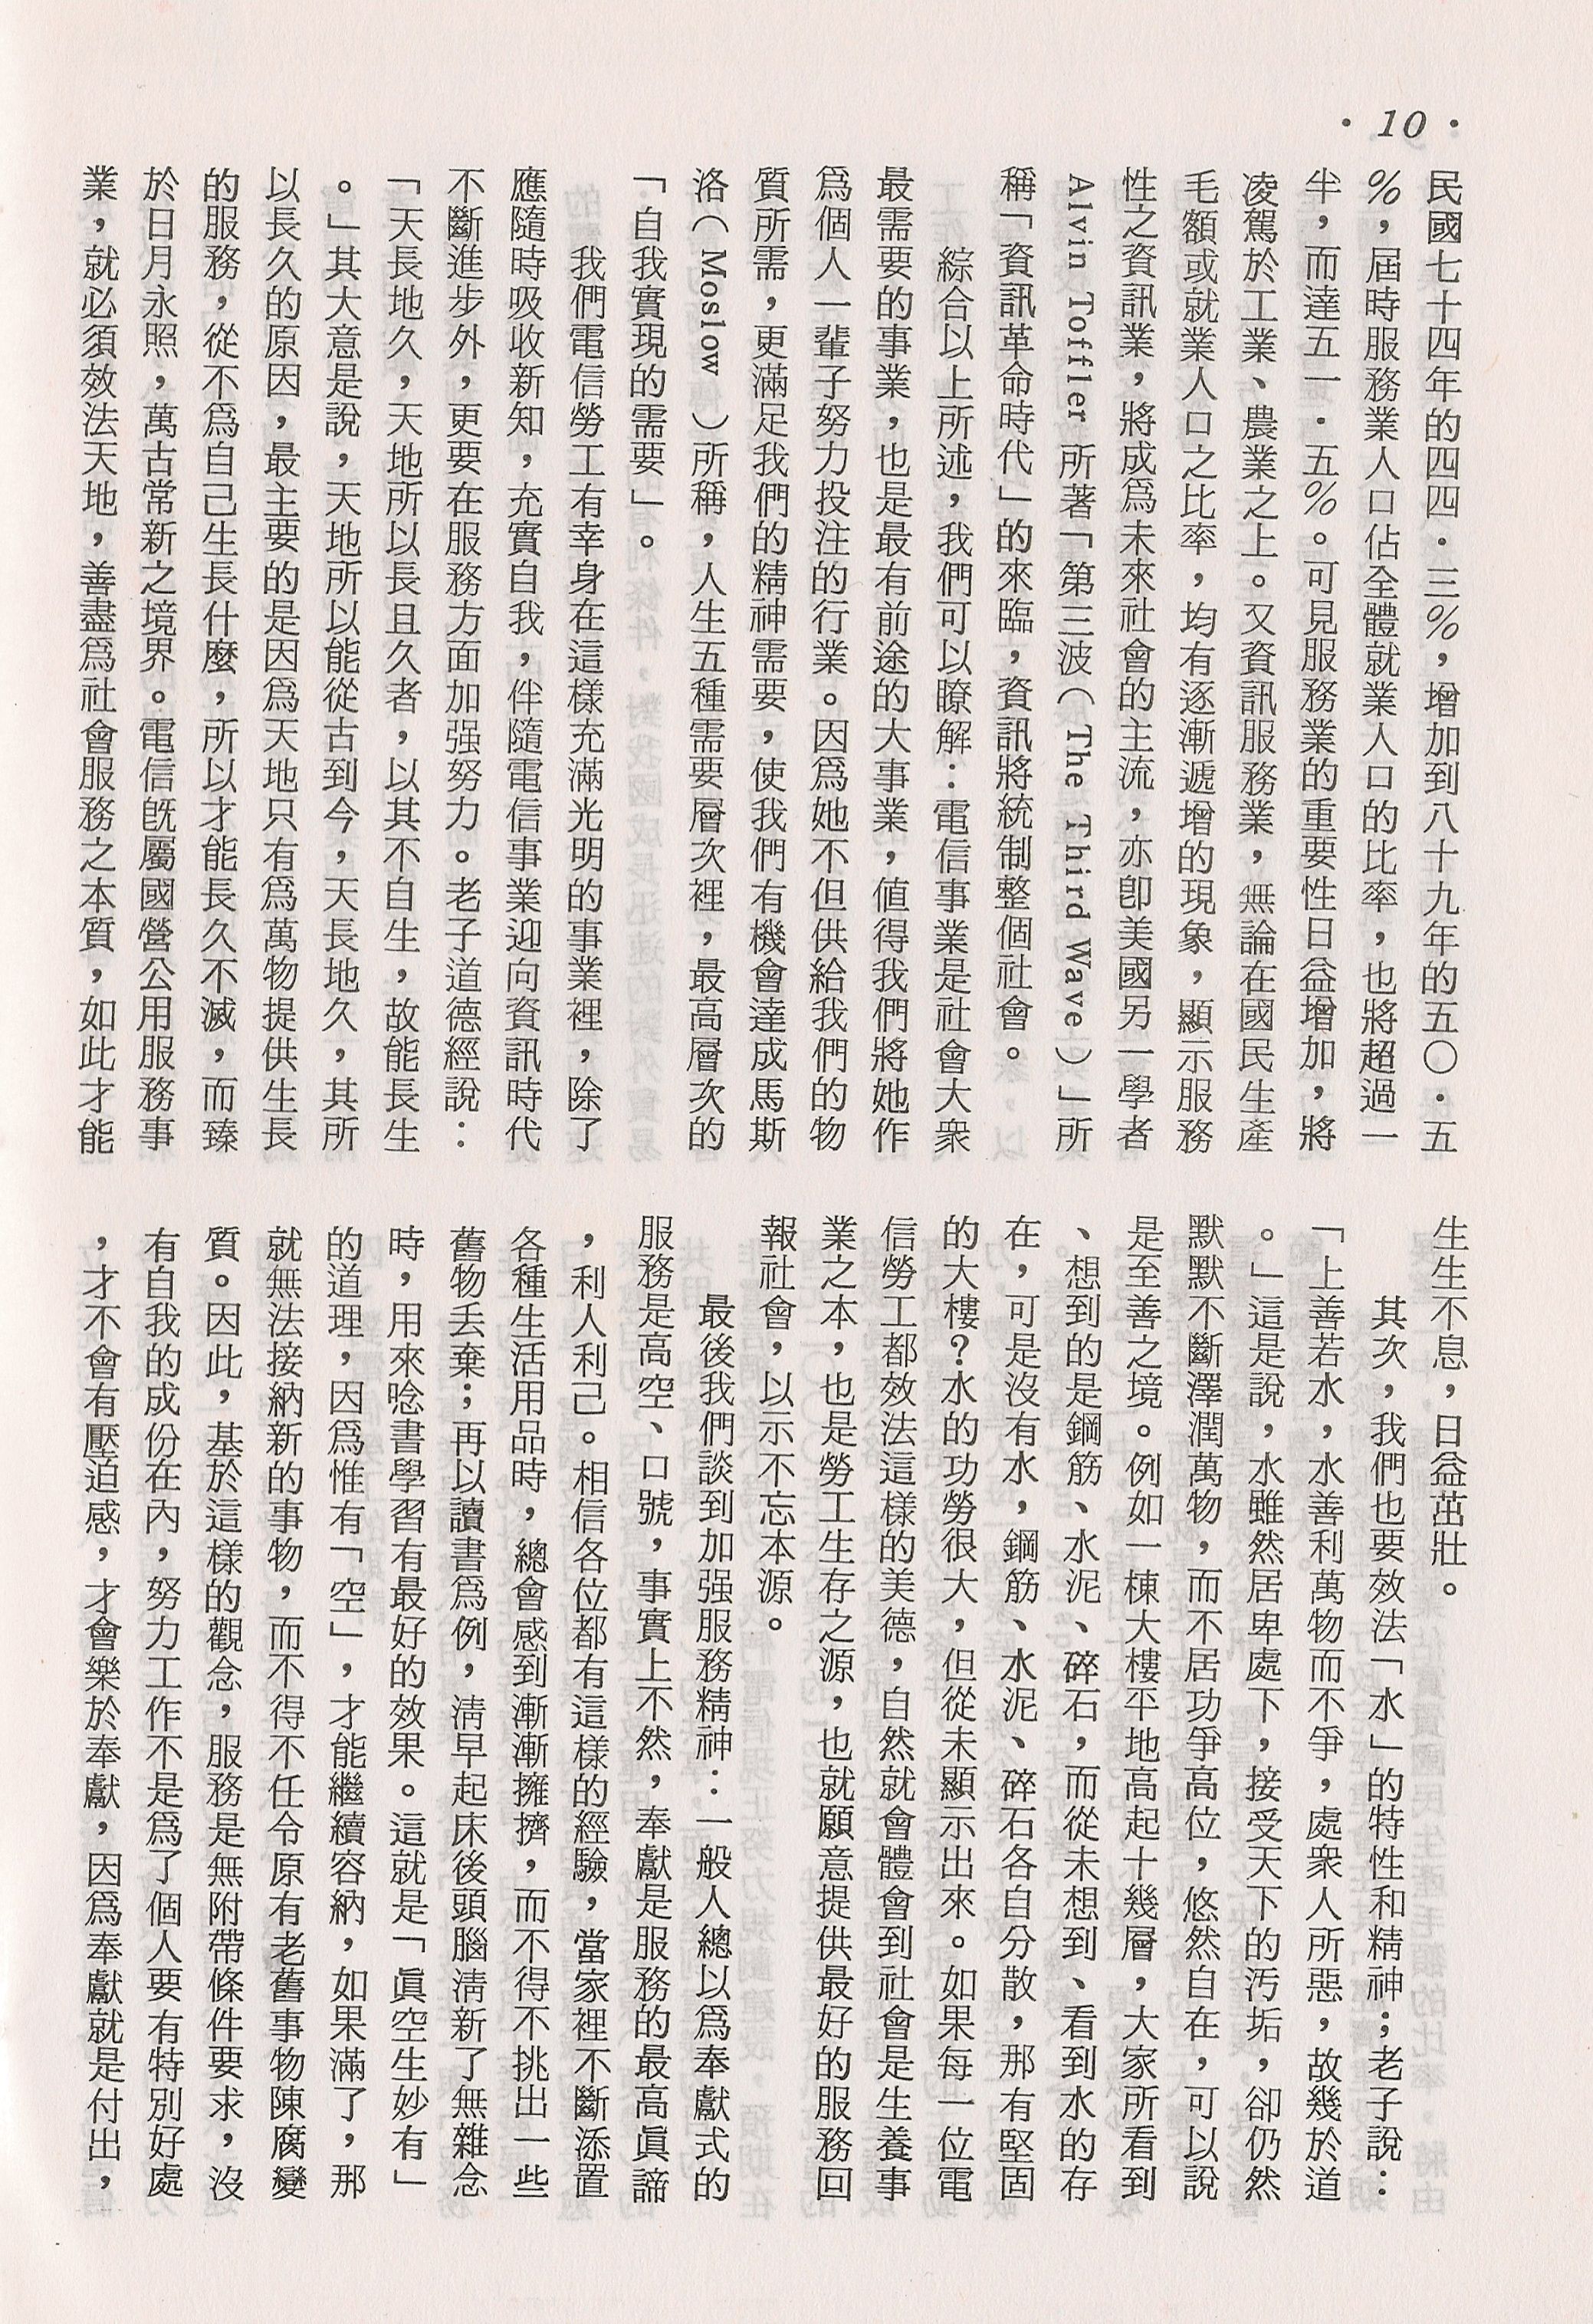 · 10 ·
民國七十四年的四四．三％，增加到八十九年的五〇．五
％，屆時服務業人口佔全體就業人口的比率，也將超過一
半，而達五一．五％。可見服務業的重要性日益增加，將
凌駕於工業、農業之上。又資訊服務業，無論在國民生產
毛額或就業人口之比率，均有逐漸遞增的現象，顯示服務
性之資訊業，將成爲未來社會的主流，亦卽美國另一學者
Alvin Toffler 所著「第三波（The Third Wave）」所
稱「資訊革命時代」的來臨，資訊將統制整個社會。
綜合以上所述，我們可以瞭解：電信事業是社會大衆
最需要的事業，也是最有前途的大事業，值得我們將她作
爲個人一輩子努力投注的行業。因爲她不但供給我們的物
質所需，更滿足我們的精神需要，使我們有機會達成馬斯
洛（Moslow）所稱，人生五種需要層次裡，最高層次的
「自我實現的需要」。
我們電信勞工有幸身在這樣充滿光明的事業裡，除了
應隨時吸收新知，充實自我，伴隨電信事業迎向資訊時代
不斷進步外，更要在服務方面加强努力。老子道德經說：
「天長地久，天地所以長且久者，以其不自生，故能長生
。」其大意是說，天地所以能從古到今，天長地久，其所
以長久的原因，最主要的是因爲天地只有爲萬物提供生長
的服務，從不爲自己生長什麼，所以才能長久不滅，而臻
於日月永照，萬古常新之境界。電信旣屬國營公用服務事
業，就必須效法天地，善盡爲社會服務之本質，如此才能
生生不息，日益茁壯。
其次，我們也要效法「水」的特性和精神；老子說：
「上善若水，水善利萬物而不爭，處衆人所惡，故幾於道
。」這是說，水雖然居卑處下，接受天下的汚垢，卻仍然
默默不斷澤潤萬物，而不居功爭高位，悠然自在，可以說
是至善之境。例如一棟大樓平地高起十幾層，大家所看到
、想到的是鋼筋、水泥、碎石，而從未想到、看到水的存
在，可是沒有水，鋼筋、水泥、碎石各自分散，那有堅固
的大樓？水的功勞很大，但從未顯示出來。如果每一位電
信勞工都效法這樣的美德，自然就會體會到社會是生養事
業之本，也是勞工生存之源，也就願意提供最好的服務回
報社會，以示不忘本源。
最後我們談到加强服務精神：一般人總以爲奉獻式的
服務是高空、口號，事實上不然，奉獻是服務的最高眞諦
，利人利己。相信各位都有這樣的經驗，當家裡不斷添置
各種生活用品時，總會感到漸漸擁擠，而不得不挑出一些
舊物丢棄；再以讀書爲例，淸早起床後頭腦淸新了無雜念
時，用來唸書學習有最好的效果。這就是「眞空生妙有」
的道理，因爲惟有「空」，才能繼續容納，如果滿了，那
就無法接納新的事物，而不得不任令原有老舊事物陳腐變
質。因此，基於這樣的觀念，服務是無附帶條件要求，沒
有自我的成份在內，努力工作不是爲了個人要有特別好處
，才不會有壓迫感，才會樂於奉獻，因爲奉獻就是付出，